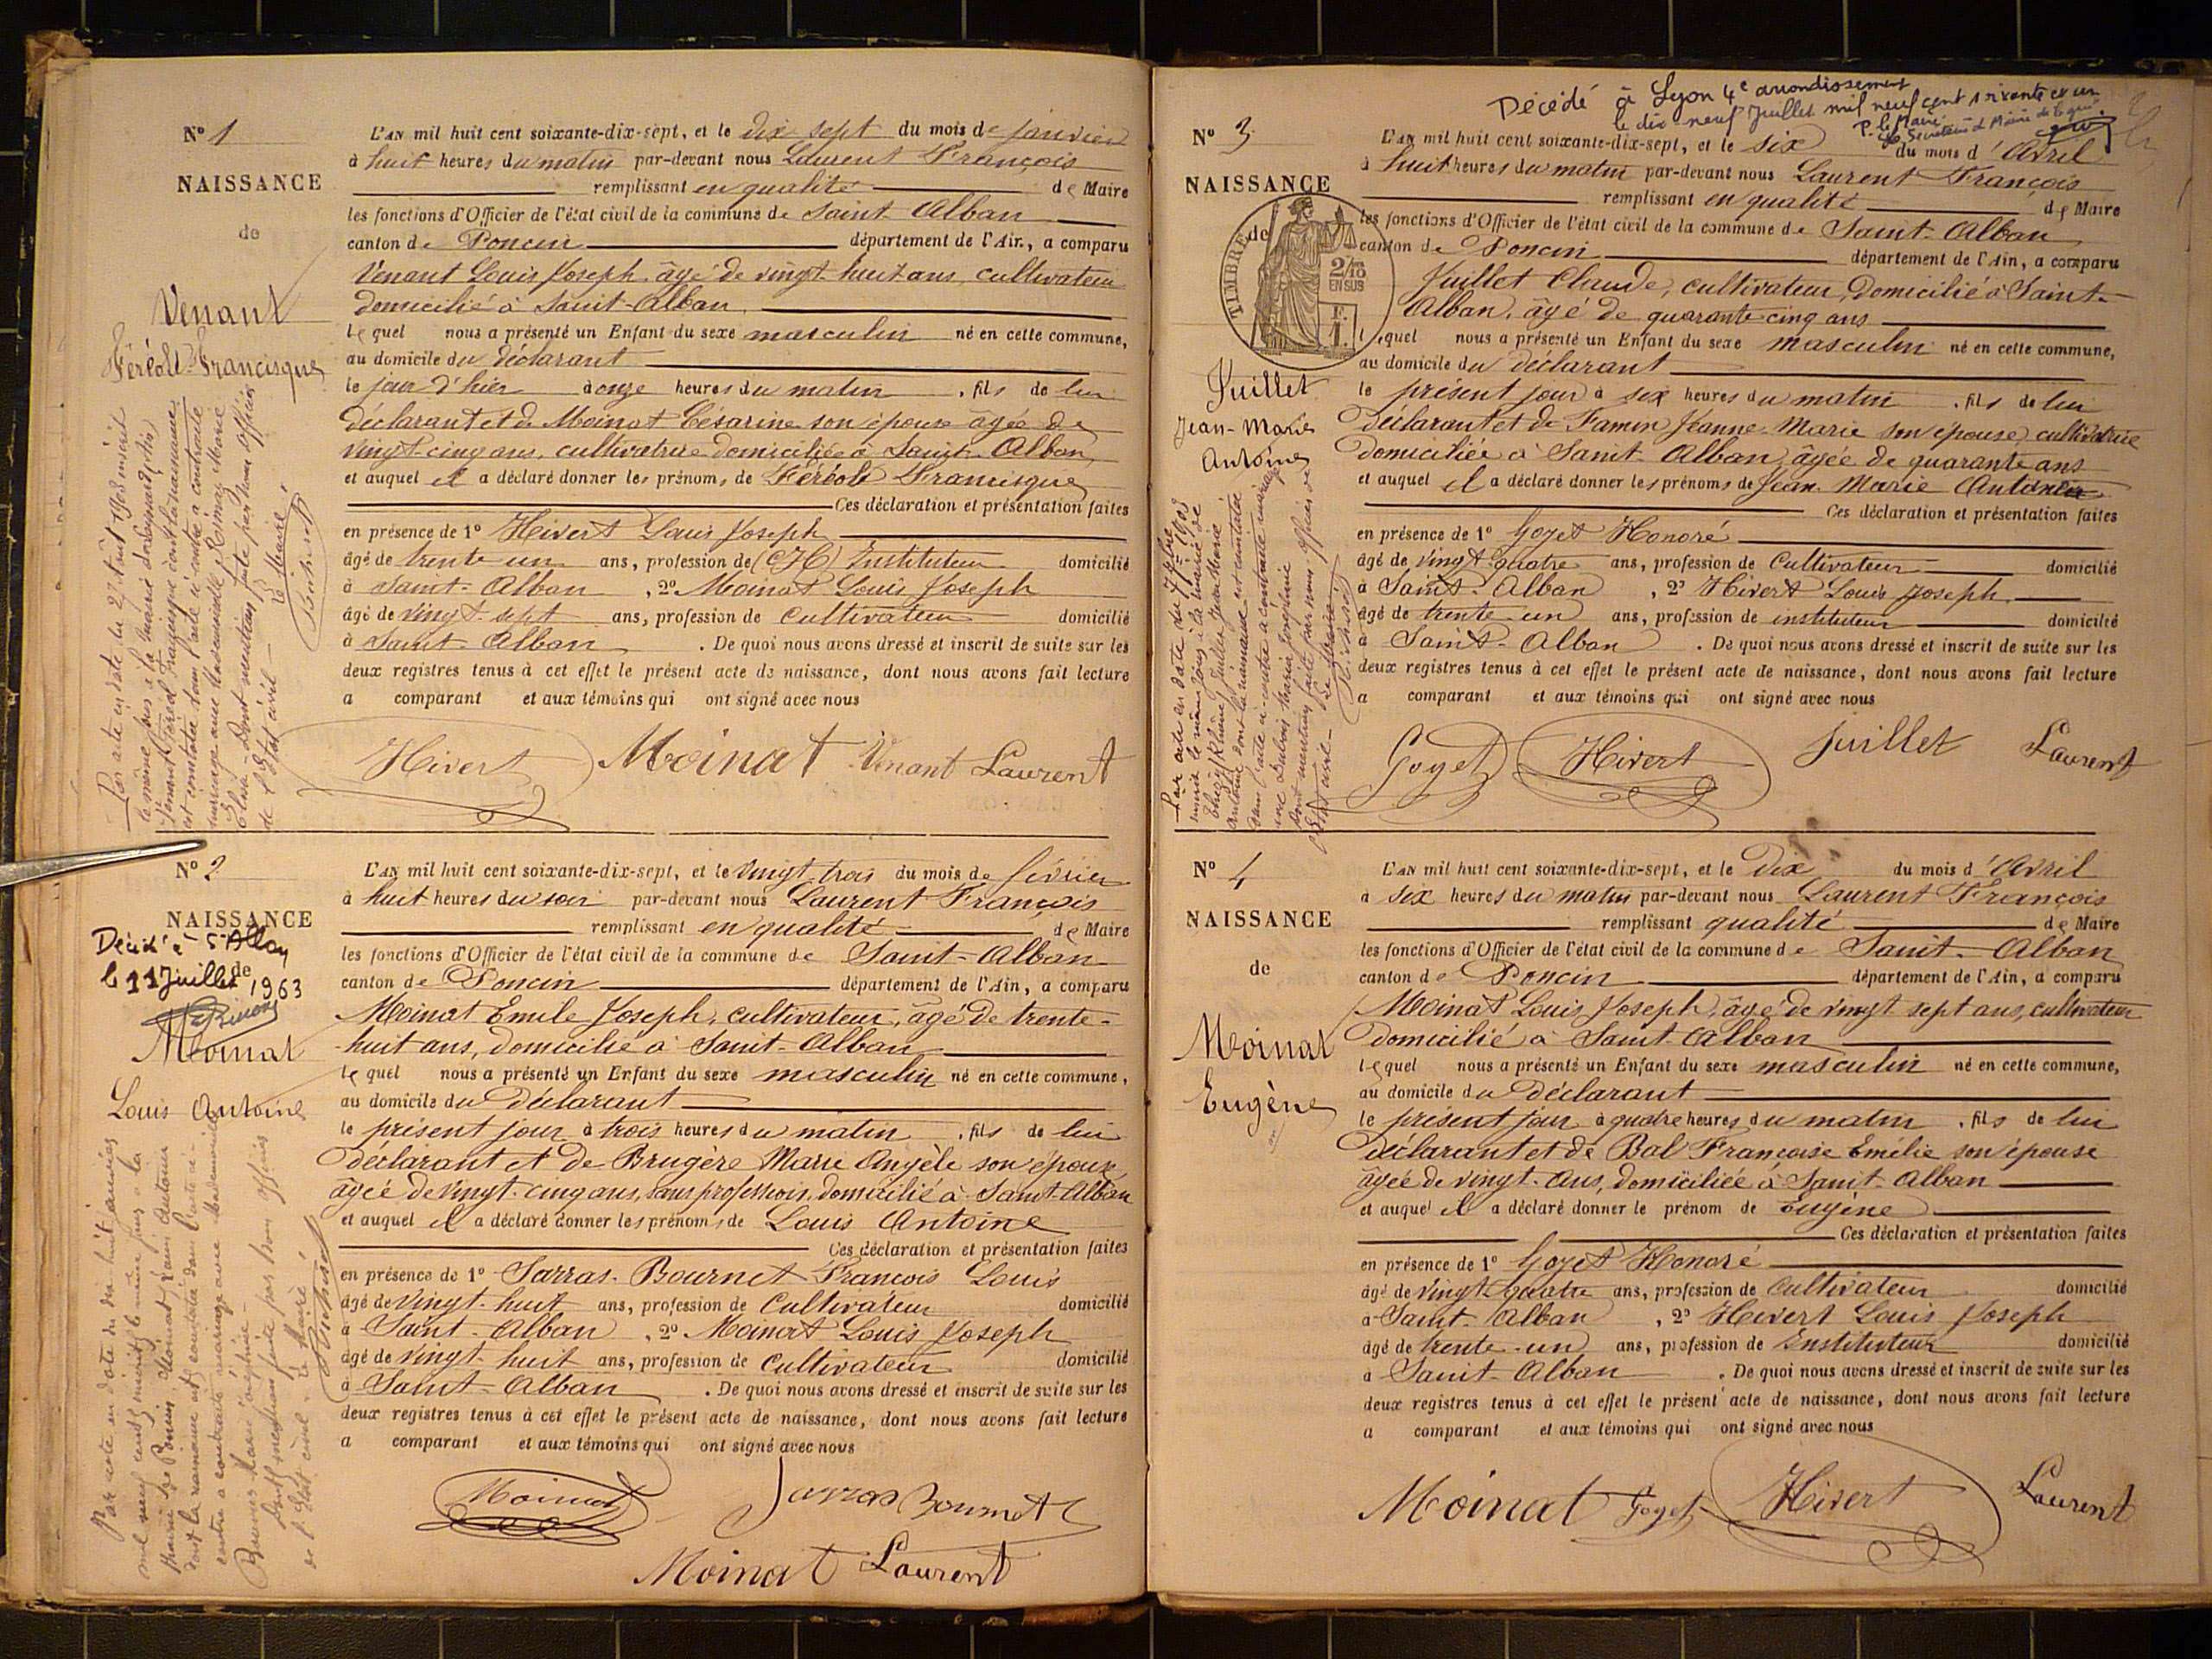 Nº 1
NAISSANCE
de
Venant
Féréole Francisque
L'AN mil huit cent soixante-dix-sept, et le dix sept du mois de janvier
à huit heures du matin par-devant nous Laurent François
remplissant en qualité de Maire
les fonctions d'Officier de l'état civil de la commune de Saint-Alban
canton de Poncin département de l'Ain, a comparu
Venant Louis Joseph, âgé de vingt-huit ans, cultivateur
domicilié à Saint-Alban
lequel nous a présenté un Enfant du sexe masculin né en cette commune,
au domicile du déclarant
le jour d'hier à onze heures du matin, fils de lui
déclarant et de Moinat Césarine son épouse âgée de
vingt-cinq ans, cultivatrice domiciliée à Saint-Alban,
et auquel il a déclaré donner les prénoms de Féréole Francisque
Ces déclaration et présentation faites
en présence de 1º Hivert Louis Joseph
âgé de trente un ans, profession de (CH) Instituteur domicilié
à Saint-Alban, 2º Moinat Louis Joseph
âgé de vingt-sept ans, profession de Cultivateur domicilié
à Saint-Alban. De quoi nous avons dressé et inscrit de suite sur les
deux registres tenus à cet effet le présent acte de naissance, dont nous avons fait lecture
a comparant et aux témoins qui ont signé avec nous
Hivert Moinat Venant Laurent
Par acte en date du 27 Août 1903 inscrit
le même jour à la mairie de
Venant Féréol Francisque dont la naissance
est constatée dans l'acte ci-contre a contracté
mariage avec Mademoiselle Marie
dont mention faite par nous officier
de l'Etat civil —
Le Maire
Nº 2
NAISSANCE
de
Décédé à St Alban
le 11 Juillet 1963
Moinat
Louis Antoine
L'AN mil huit cent soixante-dix-sept, et le vingt-trois du mois de février
à huit heures du soir par-devant nous Laurent François
remplissant en qualité de Maire
les fonctions d'Officier de l'état civil de la commune de Saint-Alban
canton de Poncin département de l'Ain, a comparu
Moinat Emile Joseph, cultivateur, âgé de trente-
huit ans, domicilié à Saint-Alban
lequel nous a présenté un Enfant du sexe masculin né en cette commune,
au domicile du Déclarant
le présent jour à trois heures du matin, fils de lui
déclarant et de Brugère Marie Angèle son épouse,
âgée de vingt-cinq ans, sans profession, domicilié à Saint-Alban
et auquel il a déclaré donner les prénoms de Louis Antoine
Ces déclaration et présentation faites
en présence de 1º Sarras-Bournet François Louis
âgé de vingt-huit ans, profession de Cultivateur domicilié
à Saint-Alban, 2º Moinat Louis Joseph
âgé de vingt-huit ans, profession de Cultivateur domicilié
à Saint-Alban. De quoi nous avons dressé et inscrit de suite sur les
deux registres tenus à cet effet le présent acte de naissance, dont nous avons fait lecture
a comparant et aux témoins qui ont signé avec nous
Moinat Sarras Bournet
Moinat Laurent
Par acte en date du dix huit janvier
mil neuf cent inscrit le même jour à la
mairie de Poncin Moinat Louis Antoine
dont la naissance est constatée dans l'acte ci-
contre a contracté mariage avec Mademoiselle
dont mention faite par nous officier
de l'Etat civil. Le Maire
Décédé à Lyon 4e arrondissement
le dix-neuf Juillet mil neuf cent soixante et un
P. le Maire
Nº 3
NAISSANCE
de
TIMBRE
2/10
EN SUS
F.
1.
Juillet
Jean-Marie
Antoine
L'AN mil huit cent soixante-dix-sept, et le six du mois d'Avril
à huit heures du matin par-devant nous Laurent François
remplissant en qualité de Maire
les fonctions d'Officier de l'état civil de la commune de Saint-Alban
canton de Poncin département de l'Ain, a comparu
Juillet Claude, cultivateur, domicilié à Saint-
Alban, âgé de quarante cinq ans
lequel nous a présenté un Enfant du sexe masculin né en cette commune,
au domicile du déclarant
le présent jour à six heures du matin, fils de lui
déclarant et de Famen Jeanne-Marie son épouse, cultivatrice
domiciliée à Saint-Alban âgée de quarante ans
et auquel il a déclaré donner les prénoms de Jean-Marie Antoine
Ces déclaration et présentation faites
en présence de 1º Goyet Honoré
âgé de vingt-quatre ans, profession de Cultivateur domicilié
à Saint-Alban, 2º Hivert Louis Joseph
âgé de trente-un ans, profession de instituteur domicilié
à Saint-Alban. De quoi nous avons dressé et inscrit de suite sur les
deux registres tenus à cet effet le présent acte de naissance, dont nous avons fait lecture
a comparant et aux témoins qui ont signé avec nous
Goyet Hivert Juillet Laurent
Par acte en date du 1903
inscrit le même jour à la mairie de
(Rhône) Juillet Jean Marie
Antoine dont la naissance est constatée
dans l'acte ci-contre a contracté mariage
avec Marie Joséphine
dont mention faite par nous officier de
l'Etat civil — Le Maire
Nº 4
NAISSANCE
de
Moinat
Eugène
L'AN mil huit cent soixante-dix-sept, et le Dix du mois d'Avril
à six heures du matin par-devant nous Laurent François
remplissant qualité de Maire
les fonctions d'Officier de l'état civil de la commune de Saint-Alban
canton de Poncin département de l'Ain, a comparu
Moinat Louis Joseph, âgé de vingt sept ans, cultivateur
Domicilié à Saint-Alban
lequel nous a présenté un Enfant du sexe masculin né en cette commune,
au domicile du Déclarant
le présent jour à quatre heures du matin, fils de lui
déclarant et de Bal Françoise Emélie son épouse
âgée de vingt-ans, domiciliée à Saint-Alban
et auquel il a déclaré donner le prénom de Eugène
Ces déclaration et présentation faites
en présence de 1º Goyet Honoré
âgé de vingt-quatre ans, profession de Cultivateur domicilié
à Saint-Alban, 2º Hivert Louis Joseph
âgé de trente-un ans, profession de Instituteur domicilié
à Saint-Alban. De quoi nous avons dressé et inscrit de suite sur les
deux registres tenus à cet effet le présent acte de naissance, dont nous avons fait lecture
a comparant et aux témoins qui ont signé avec nous
Moinat Goyet Hivert Laurent